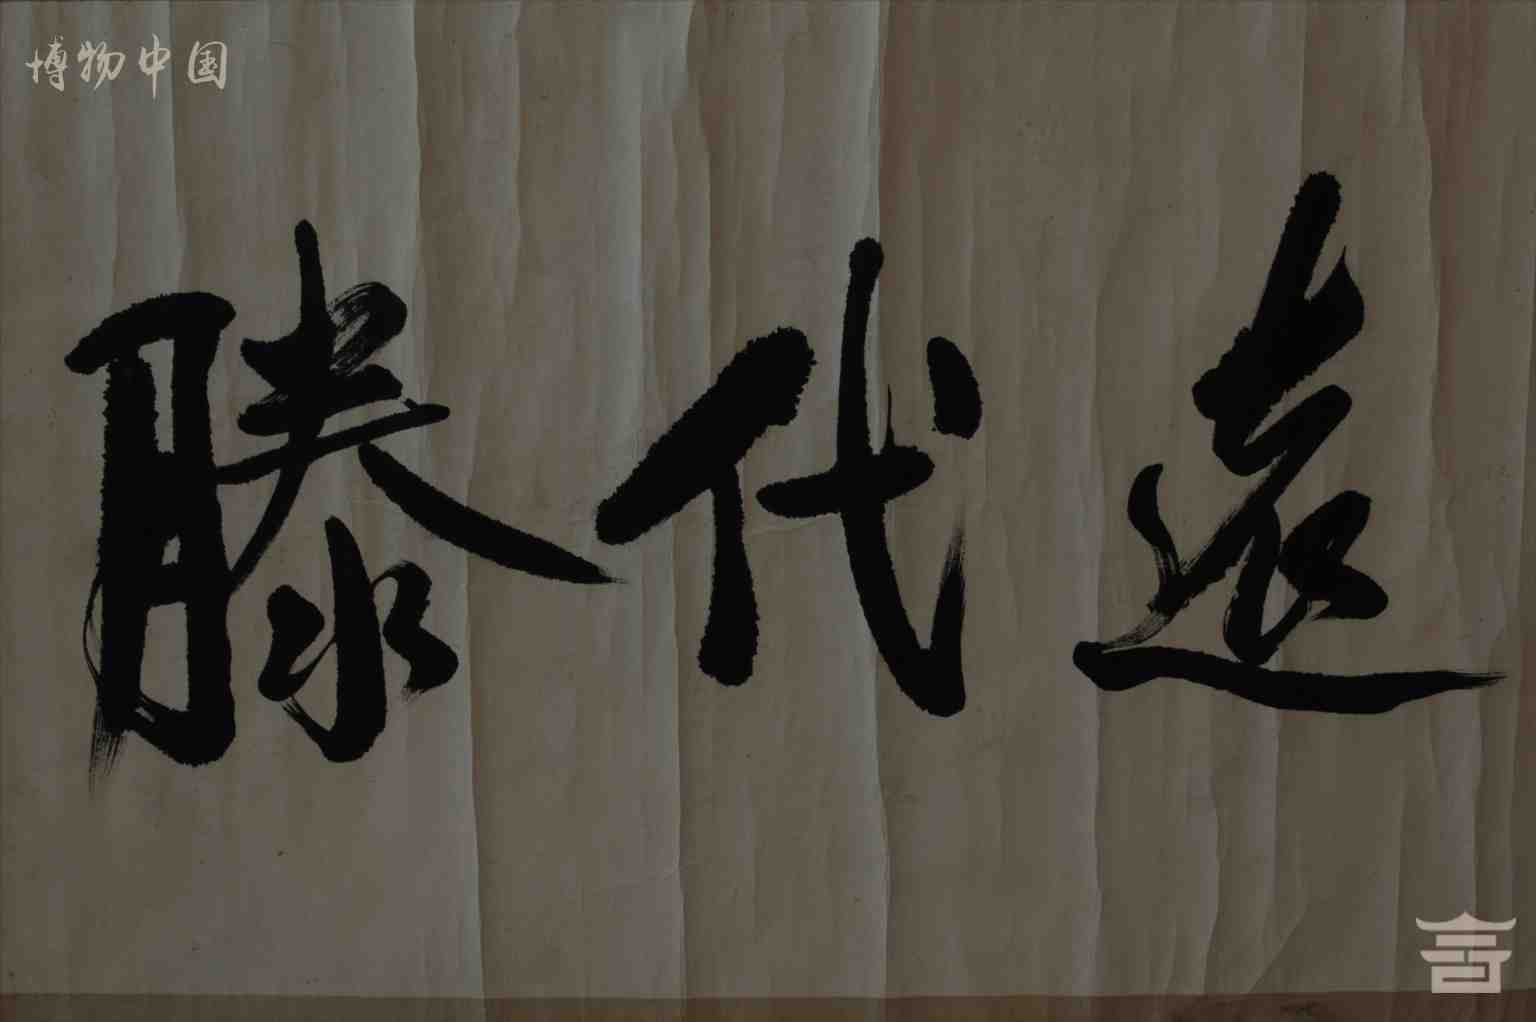 博物中国
滕代远